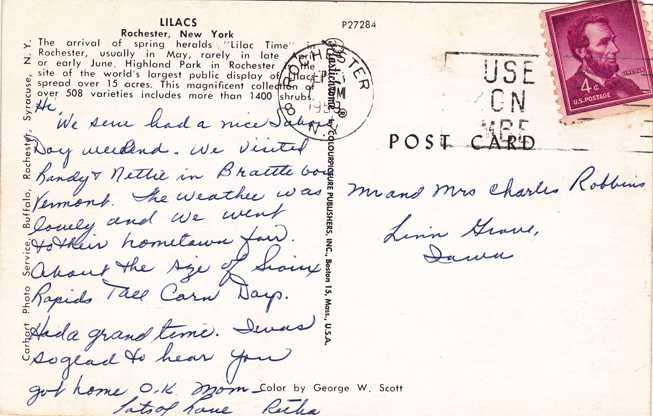 LILACS
Rochester, New York
The arrival of spring heralds "Lilac Time" in
Rochester, usually in May, rarely in late
or early June. Highland Park in Rochester is the
site of the world's largest public display of lilacs
spread over 15 acres. This magnificent collection of
over 508 varieties includes more than 1400 shrubs.
P27284
Hi,
We sure had a nice Labor
Day weekend. We visited
Randy & Nettie in Brattleboro
Vermont. The weather was
lovely and we went
to their hometown fair.
About the size of Sioux
Rapids Tall Corn Days.
Had a grand time. I was
so glad to hear you
got home O.K. Mom
Lots of Love Retha
Color by George W. Scott
Carhart Photo Service, Buffalo, Rochester, Syracuse, N. Y.
Plastichrome ® by COLOURPICTURE PUBLISHERS, INC., Boston 15, Mass., U.S.A.
ROCHESTER
N.Y.
USE
4¢
U.S. POSTAGE
POST CARD
Mr and Mrs Charles Robbins
Linn Grove,
Iowa